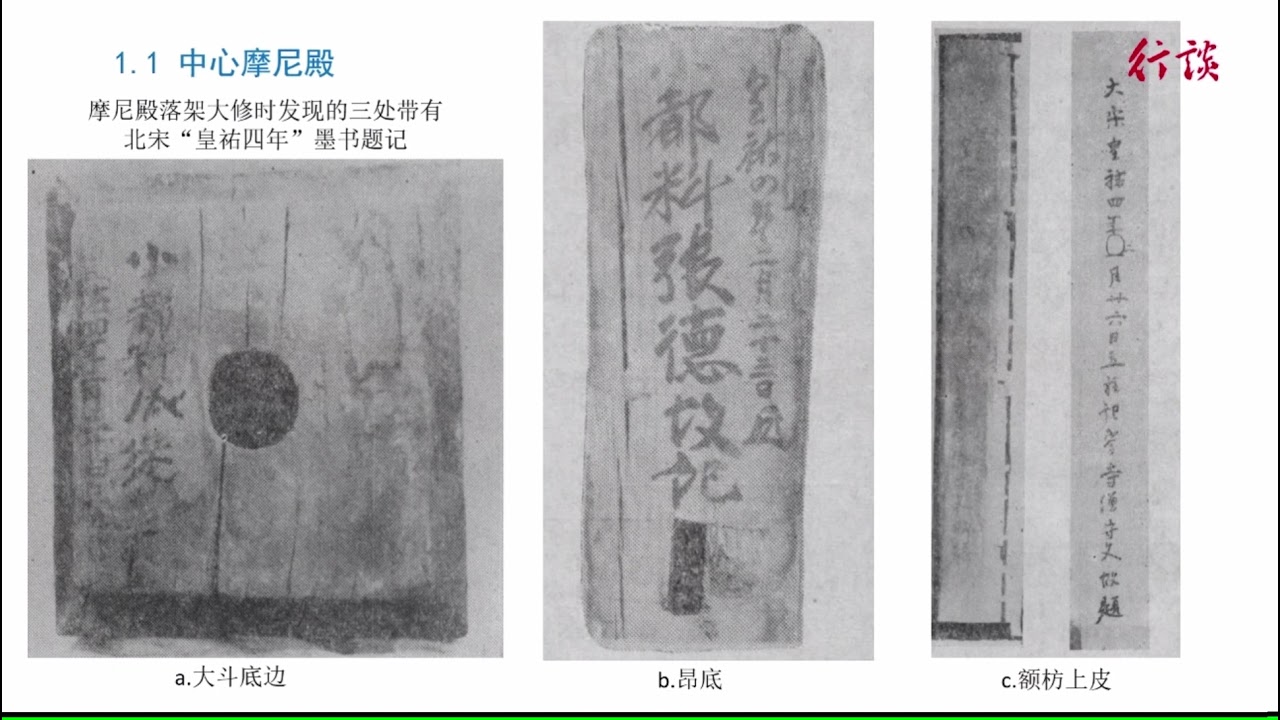 1.1 中心摩尼殿
行谈
摩尼殿落架大修时发现的三处带有
北宋“皇祐四年”墨书题记
小都料
都料張德故記
皇祐四年二月二十三日
大宋皇祐四年〇月廿六日立柱記常寺僧守义故題
a.大斗底边
b.昂底
c.额枋上皮